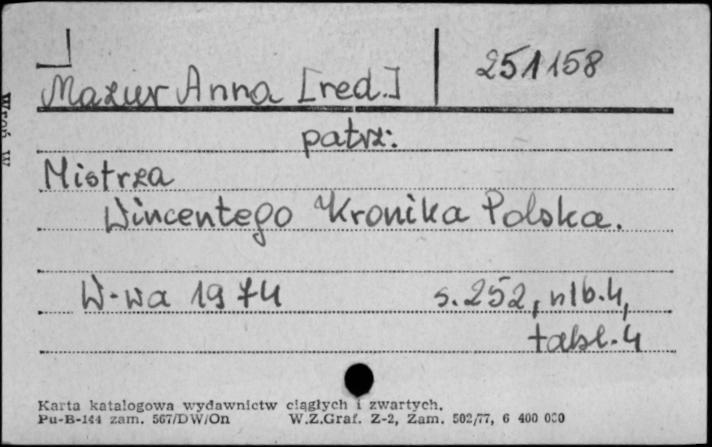 251158
Mazur Anna [red.]
patrz:
Mistrza
Wincentego Kronika Polska.
W-wa 1974 s. 252, nlb. 4,
tabl. 4
Karta katalogowa wydawnictw ciągłych i zwartych.
Pu-B-144 zam. 567/DW/On W.Z.Graf. Z-2, Zam. 502/77, 6 400 000